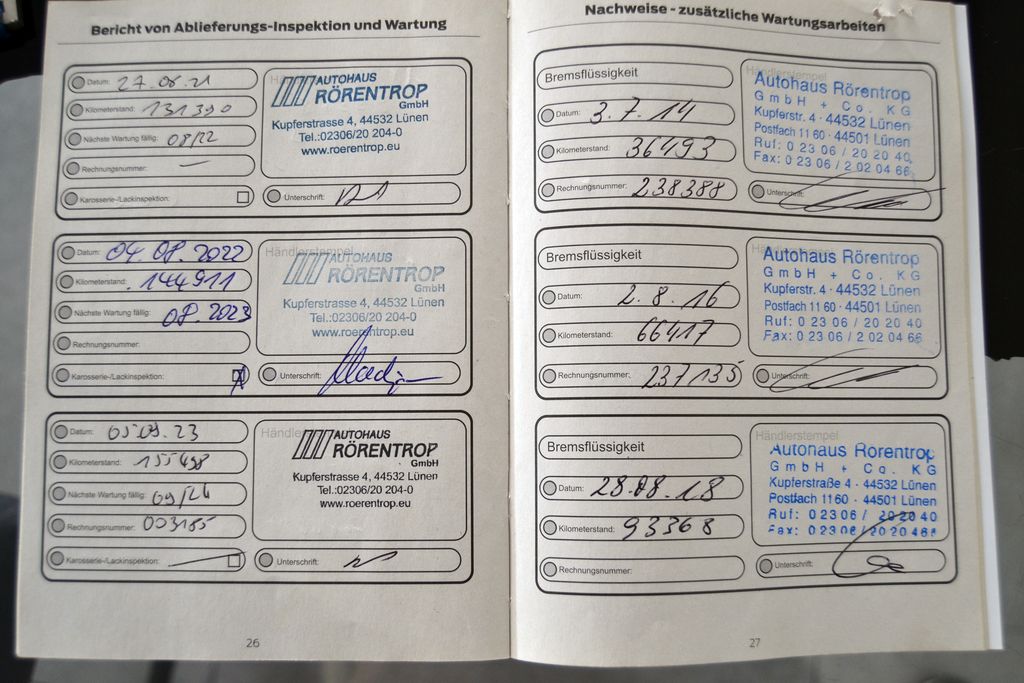 Bericht von Ablieferungs-Inspektion und Wartung
Datum: 27.08.21
Kilometerstand: 131390
Nächste Wartung fällig: 08/22
Rechnungsnummer: —
Karosserie-/Lackinspektion:
AUTOHAUS
RÖRENTROP
GmbH
Kupferstrasse 4, 44532 Lünen
Tel.:02306/20 204-0
www.roerentrop.eu
Unterschrift:
Datum: 04.08.2022
Kilometerstand: 144911
Nächste Wartung fällig: 08.2023
Rechnungsnummer:
Karosserie-/Lackinspektion:
Händlerstempel
AUTOHAUS
RÖRENTROP
GmbH
Kupferstrasse 4, 44532 Lünen
Tel.:02306/20 204-0
www.roerentrop.eu
Unterschrift:
Datum: 05.09.23
Kilometerstand: 155498
Nächste Wartung fällig: 09/24
Rechnungsnummer: 003185
Karosserie-/Lackinspektion:
AUTOHAUS
RÖRENTROP
GmbH
Kupferstrasse 4, 44532 Lünen
Tel.:02306/20 204-0
www.roerentrop.eu
Unterschrift:
26
Nachweise - zusätzliche Wartungsarbeiten
Bremsflüssigkeit
Datum: 3.7.14
Kilometerstand: 36493
Rechnungsnummer: 238388
Händlerstempel
Autohaus Rörentrop
GmbH + Co. KG
Kupferstr. 4 · 44532 Lünen
Postfach 11 60 · 44501 Lünen
Ruf: 0 23 06 / 20 20 40
Fax: 0 23 06 / 2 02 04 66
Unterschrift:
Bremsflüssigkeit
Datum: 2.8.16
Kilometerstand: 66417
Rechnungsnummer: 237135
Autohaus Rörentrop
GmbH + Co. KG
Kupferstr. 4 · 44532 Lünen
Postfach 11 60 · 44501 Lünen
Ruf: 0 23 06 / 20 20 40
Fax: 0 23 06 / 2 02 04 66
Unterschrift:
Bremsflüssigkeit
Datum: 28.08.18
Kilometerstand: 93368
Rechnungsnummer:
Händlerstempel
Autohaus Rörentrop
GmbH + Co. KG
Kupferstraße 4 · 44532 Lünen
Postfach 1160 · 44501 Lünen
Ruf: 02306 / 202040
Fax: 02306 / 2020466
Unterschrift:
27